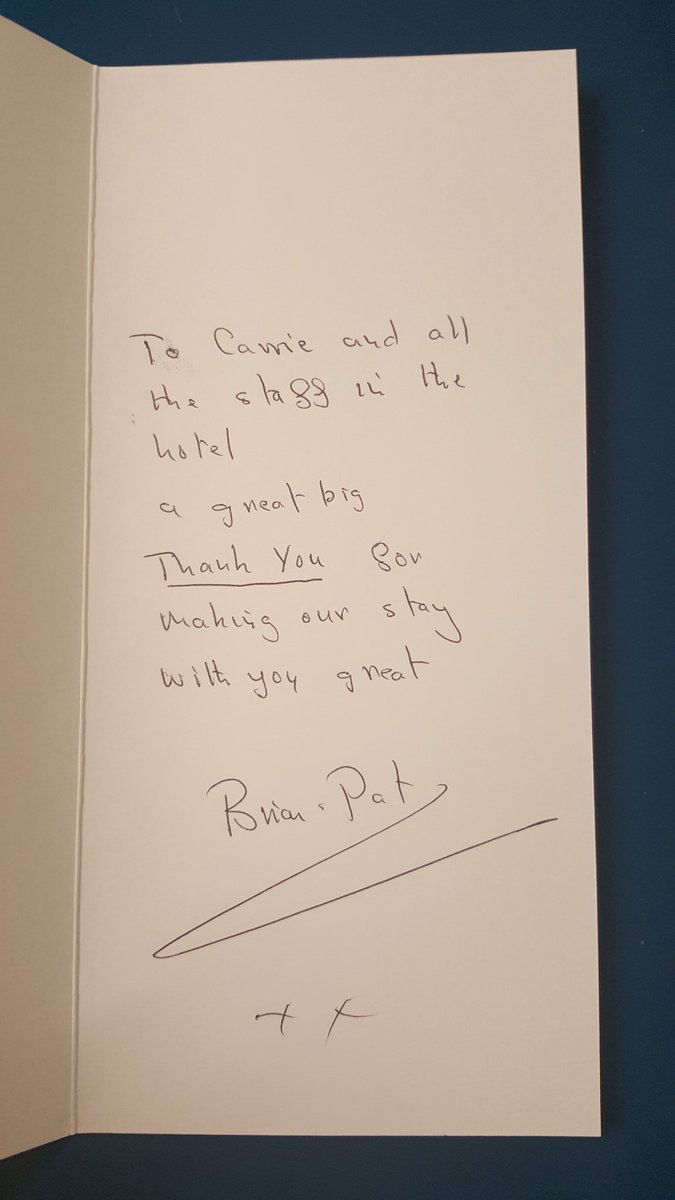 To Carrie and all
the staff in the
hotel
a great big
Thank You for
making our stay
with you great
Brian . Pat
x x